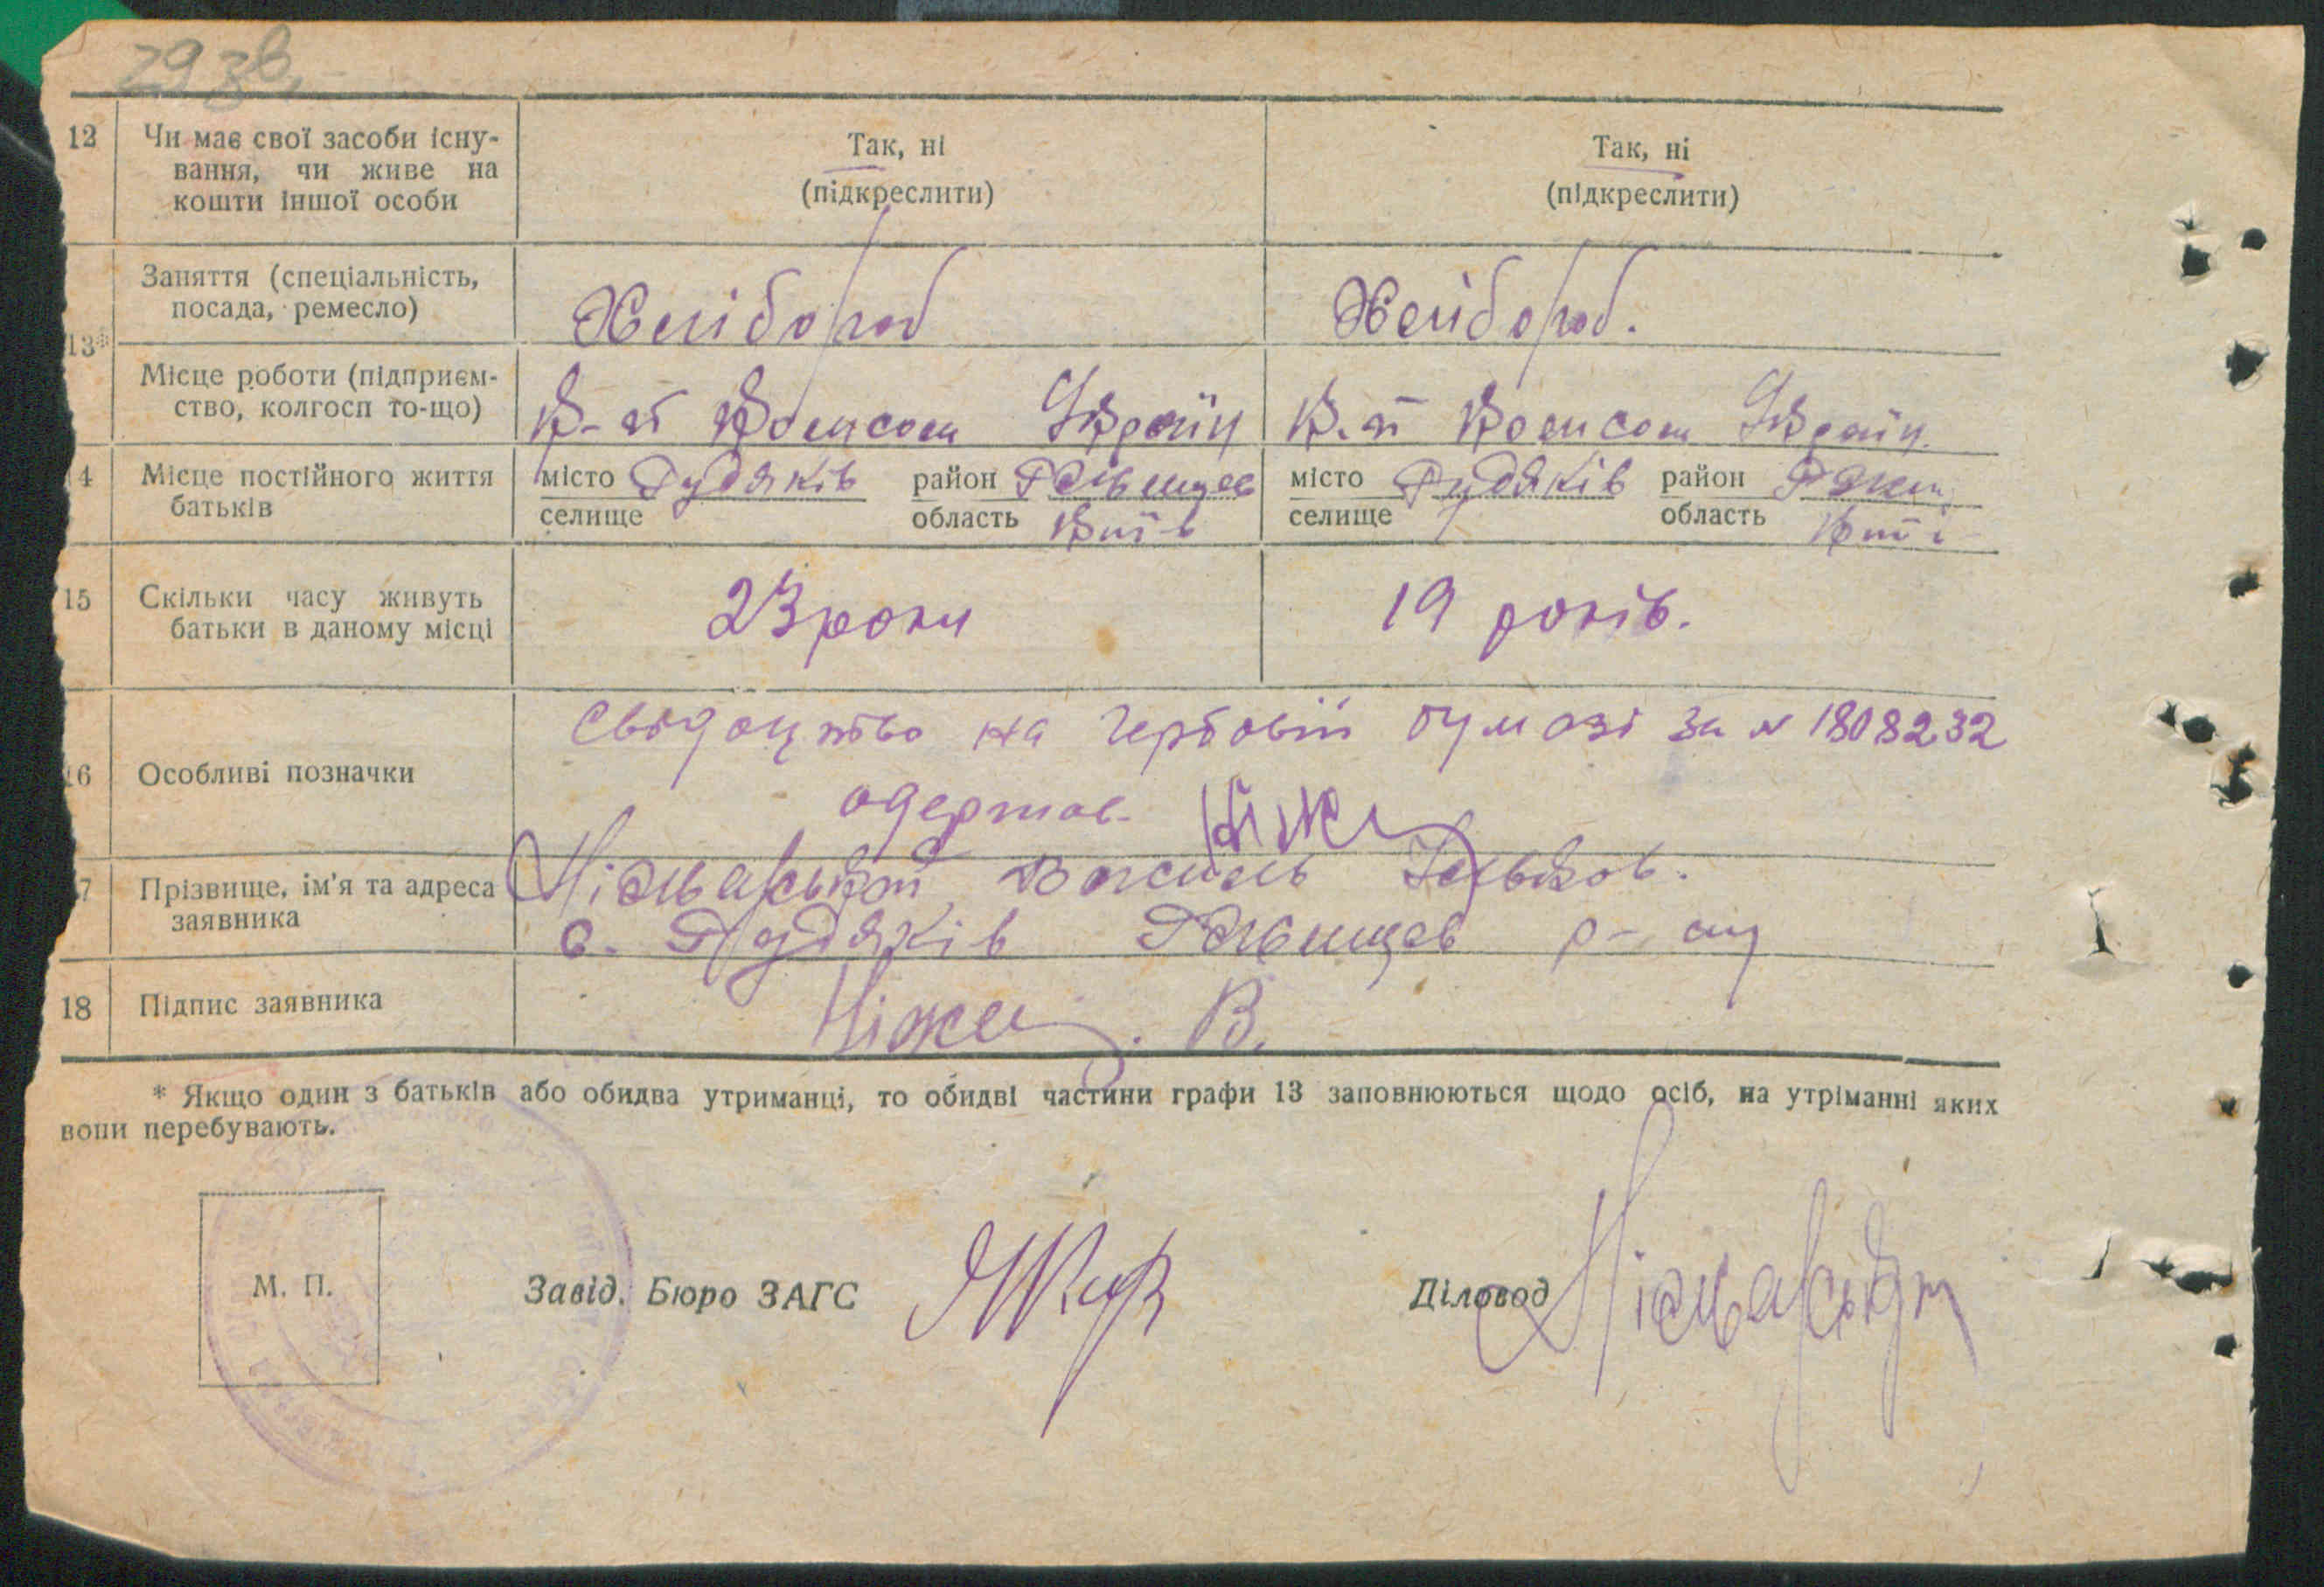 29 зв.
12 Чи має свої засоби існу- Так, ні Так, ні
вання, чи живе на (підкреслити) (підкреслити)
кошти іншої особи
Заняття (спеціальність, Хлібороб Хлібороб.
посада, ремесло)
13*
Місце роботи (підприєм- К-п Комсом Україн К-п Комсом Україн.
ство, колгосп то-що)
4 Місце постійного життя місто Гудяків район Ржищев місто Гудяків район Ржищ
батьків селище область Київ селище область Киї
15 Скільки часу живуть 23 роки 19 років.
батьки в даному місці
Свідоцтво на гербовій бумазі за № 1808232
16 Особливі позначки
одержав. Ніж
7 Прізвище, ім'я та адреса Ніжарський Василь
заявника с. Гудяків Ржищев р-ну
18 Підпис заявника Ніж . В.
* Якщо один з батьків або обидва утриманці, то обидві частини графи 13 заповнюються щодо осіб, на утріманні яких
вони перебувають.
М. П. Завід. Бюро ЗАГС Діловод